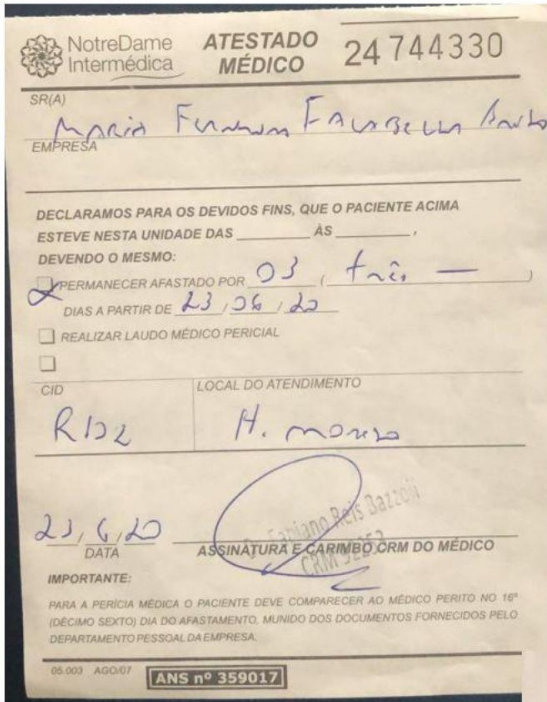 NotreDame
Intermédica
ATESTADO
MÉDICO
24 744330
SR(A)
Maria Fernanda Falabella
EMPRESA
DECLARAMOS PARA OS DEVIDOS FINS, QUE O PACIENTE ACIMA
ESTEVE NESTA UNIDADE DAS ________ ÀS ________,
DEVENDO O MESMO:
PERMANECER AFASTADO POR 03 ( três — )
DIAS A PARTIR DE 23/06/20
REALIZAR LAUDO MÉDICO PERICIAL
CID
LOCAL DO ATENDIMENTO
R102
H.
23/6/20
Dr. Fabiano Reis Bazzoli
DATA
ASSINATURA E CARIMBO CRM DO MÉDICO
CRM
IMPORTANTE:
PARA A PERÍCIA MÉDICA O PACIENTE DEVE COMPARECER AO MÉDICO PERITO NO 16º
(DÉCIMO SEXTO) DIA DO AFASTAMENTO, MUNIDO DOS DOCUMENTOS FORNECIDOS PELO
DEPARTAMENTO PESSOAL DA EMPRESA.
05.003 AGO/07
ANS nº 359017